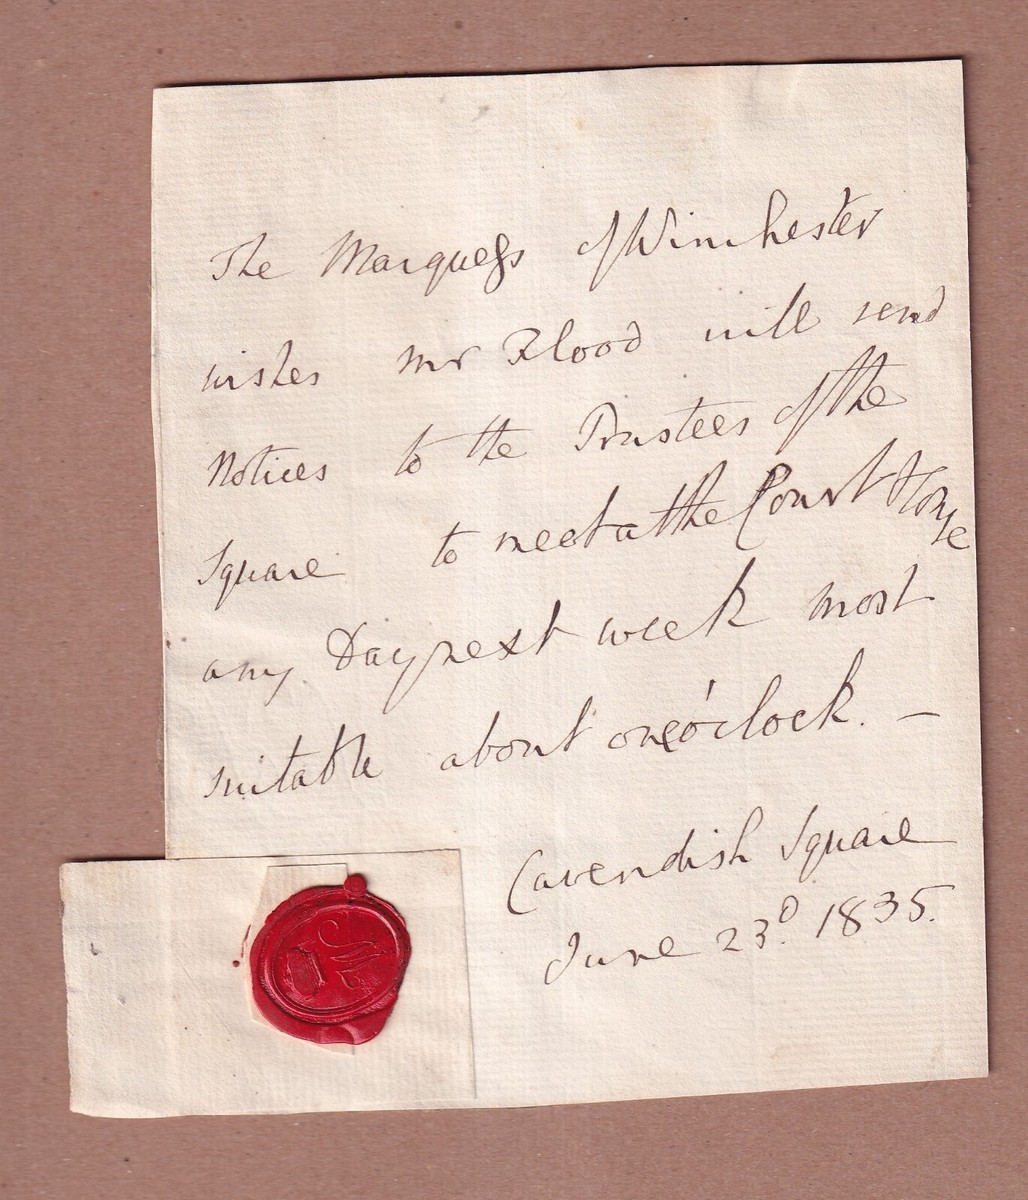 The Marquess of Winchester
wishes Mr Flood will send
Notices to the Trustees of the
Square to meet at the Court House
any Day next week most
suitable about one o'clock. —
Cavendish Square
June 23d. 1835.